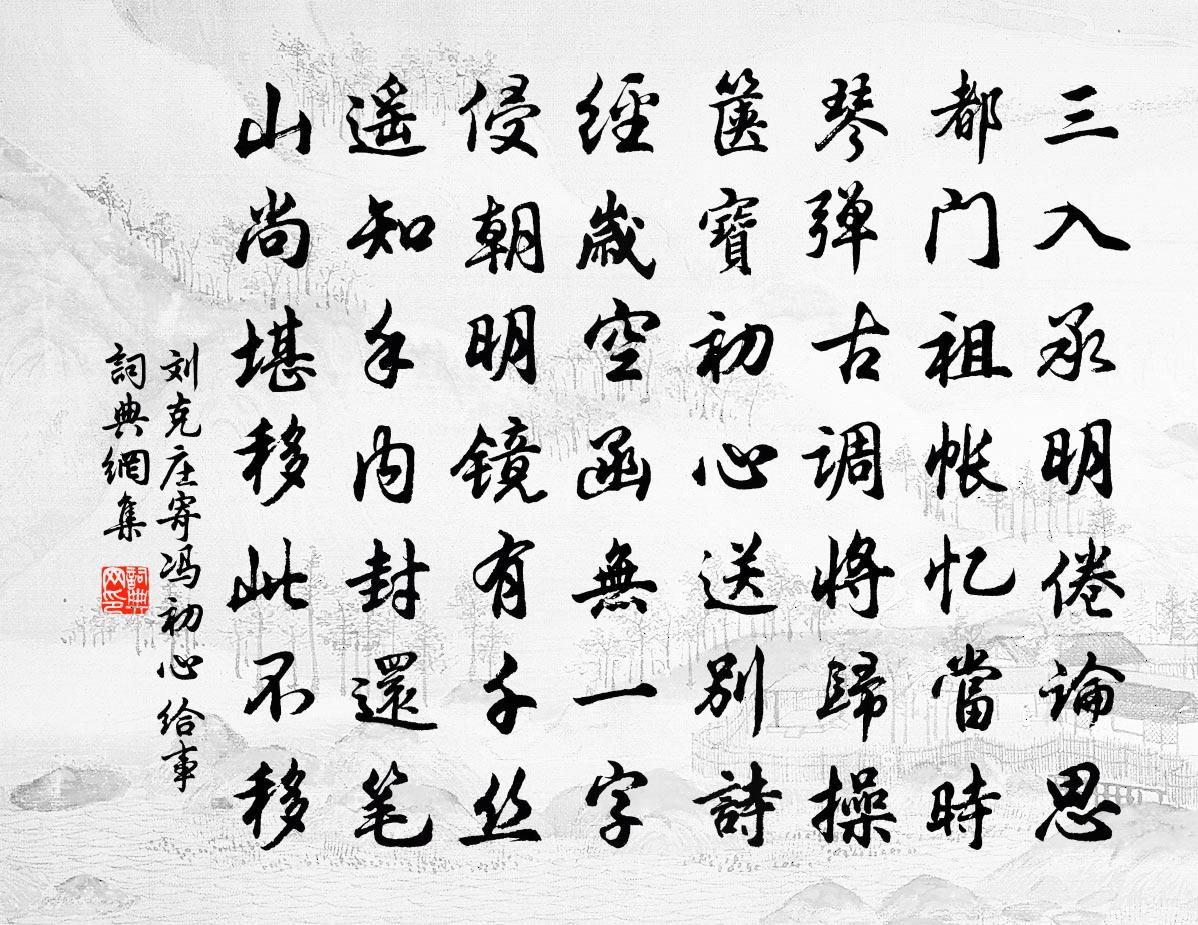 三入承明倦论思
都门祖帐忆當時
琴弹古调将歸操
箧寶初心送别詩
經歲空函無一字
侵朝明镜有千丝
遥知手内封還笔
山尚堪移此不移
刘克庄寄冯初心给事
詞典網集
詞典网印